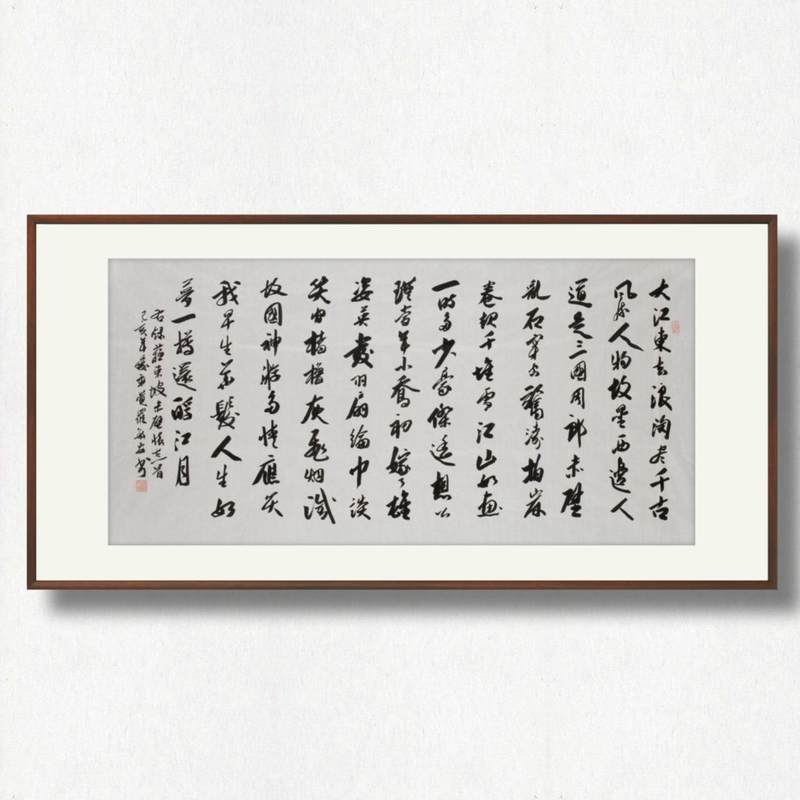 大江東去浪淘尽千古
風流人物故壘西邊人
道是三國周郎赤壁
亂石穿空驚濤拍岸
卷起千堆雪江山如畫
一時多少豪傑遙想公
瑾當年小喬初嫁了雄
姿英發羽扇綸巾談
笑間檣櫓灰飛烟滅
故國神遊多情應笑
我早生華髮人生如
夢一樽還酹江月
右錄蘇東坡赤壁懷古
己亥年覺羅書